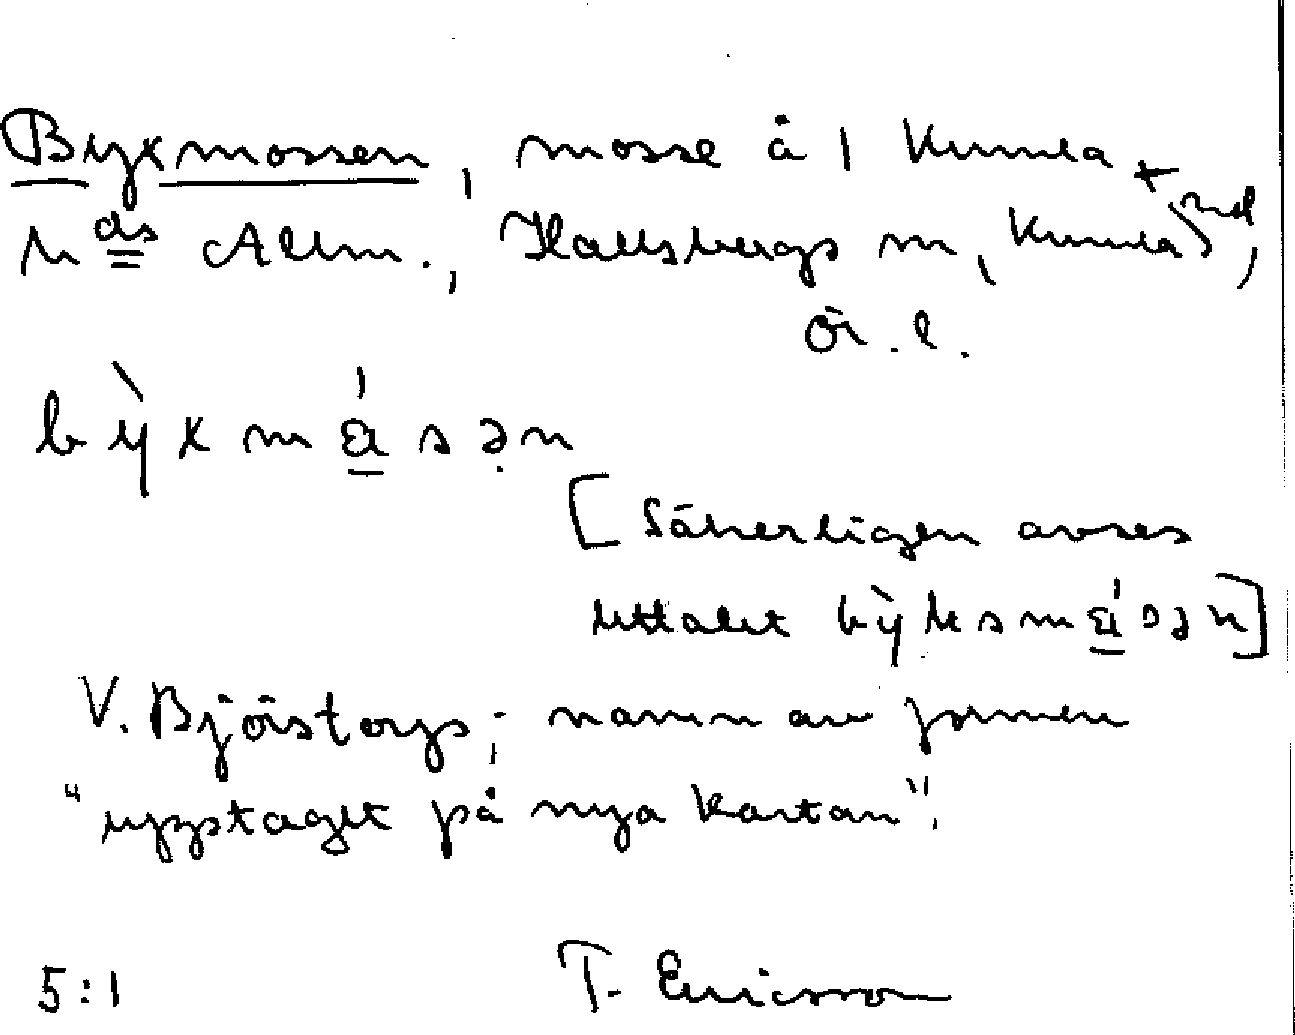 Byxmossen, mosse å 1 Kumla
hds Allm., Hallsbergs sn, Kumla hd,
Ör. l.
bỳxmásən
[Säkerligen avses
uttalet bỳksmásən]
V. Björstorp; namn av formen
"upptaget på nya kartan".
5:1 T. Ericsson